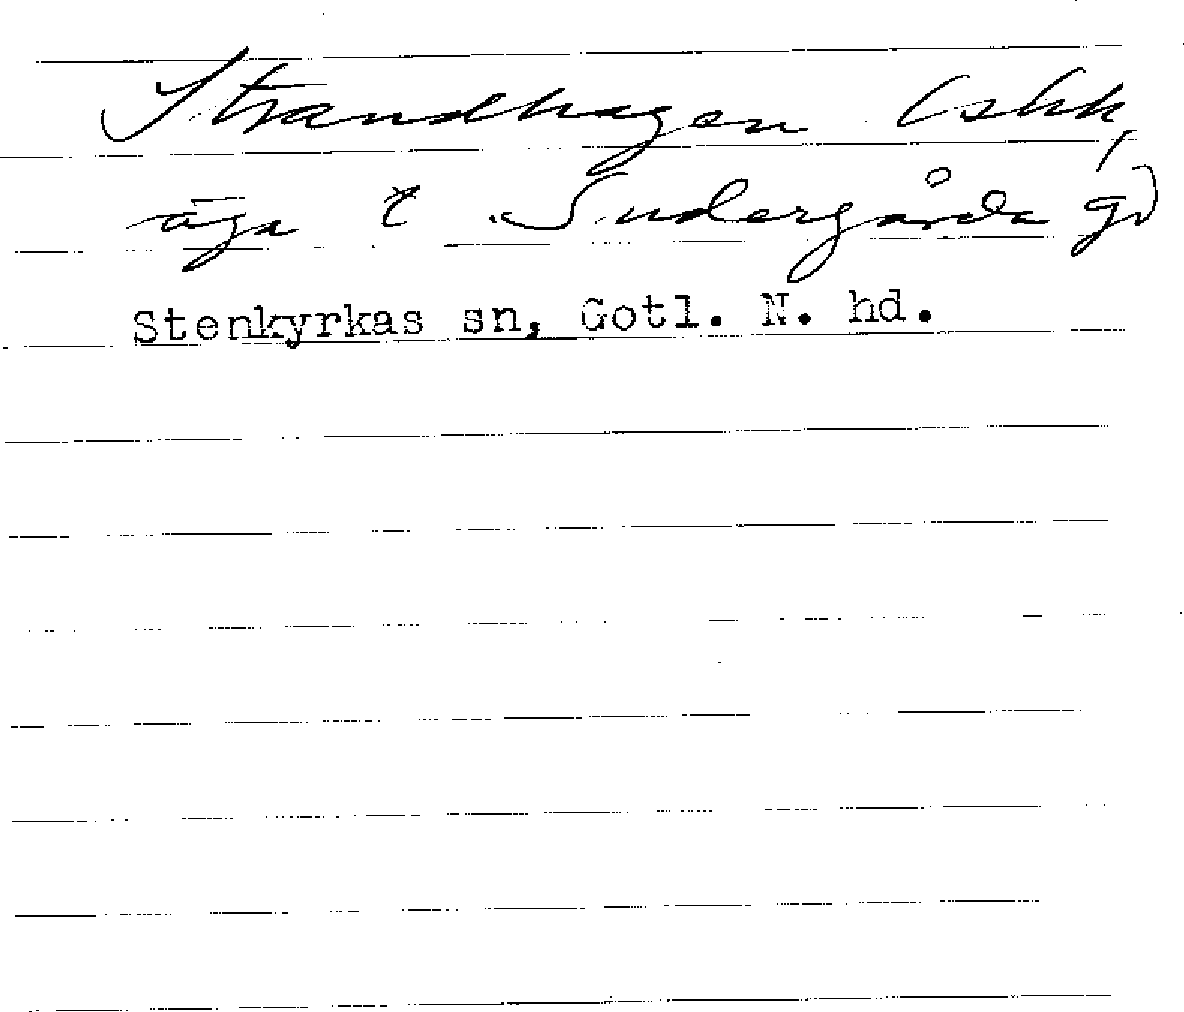 Strandhagen (skk,
äga t Sudergårda gd)
Stenkyrkas sn, Gotl. N. hd.